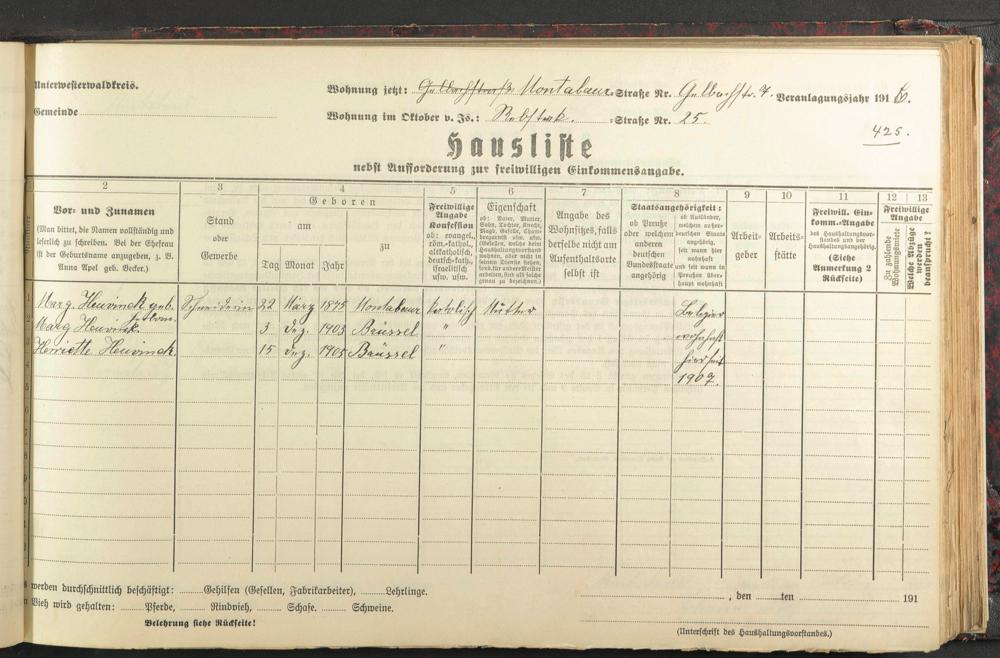 Unterwesterwaldkreis.
Wohnung jetzt: Montabaur Straße Nr. Gelbachstr. 7. Veranlagungsjahr 191 6.
Gemeinde
Wohnung im Oktober v. Js.: Rebstock. Straße Nr. 25.
425.
Hausliste
nebst Aufforderung zur freiwilligen Einkommensangabe.
2 3 4 5 6 7 8 9 10 11 12 13
Vor- und Zunamen
(Man bittet, die Namen vollständig und
leserlich zu schreiben. Bei der Ehefrau
ist der Geburtsname anzugeben, z. B.
Anna Apel geb. Becker.)
Stand
oder
Gewerbe
Geboren
am
zu
Tag Monat Jahr
Freiwillige
Angabe
Konfession
ob: evangel.,
röm.-kathol.,
altkatholisch,
deutsch-kath.,
israelitisch
usw. usw.
Eigenschaft
ob: Vater, Mutter,
Sohn, Tochter, Knecht,
Magd, Geselle,
Angabe des
Wohnsitzes, falls
derselbe nicht am
Aufenthaltsorte
selbst ist
Staatsangehörigkeit:
ob Preuße
oder welchem
anderen
deutschen
Bundesstaate
angehörig
ob Ausländer,
welchem außer-
deutschen Staate
angehörig,
seit wann hier
wohnhaft
und seit wann in
Preußen über-
haupt wohnhaft
Arbeit-
geber
Arbeits-
stätte
Freiwill. Ein-
komm.-Angabe
des Haushaltungsvor-
standes und der
Haushaltungsangehörig.
(Siehe
Anmerkung 2
Rückseite)
Freiwillige
Angabe
Zu zahlende
Wohnungsmiete
Welche Abzüge
werden
beansprucht?
Marg. Heuvinck geb. Schneiderin 22 März 1875 Montabaur katolisch Mutter Belgier
Marg Heuvinck 3 Dez. 1903 Brüssel " wohnhaft
Henriette Heuvinck 15 Dez. 1905 Brüssel " hier seit
1907.
5
6
7
8
9
werden durchschnittlich beschäftigt: Gehilfen (Gesellen, Fabrikarbeiter), Lehrlinge.
Vieh wird gehalten: Pferde, Rindvieh, Schafe. Schweine.
, den ten 191
Belehrung siehe Rückseite!
(Unterschrift des Haushaltungsvorstandes.)